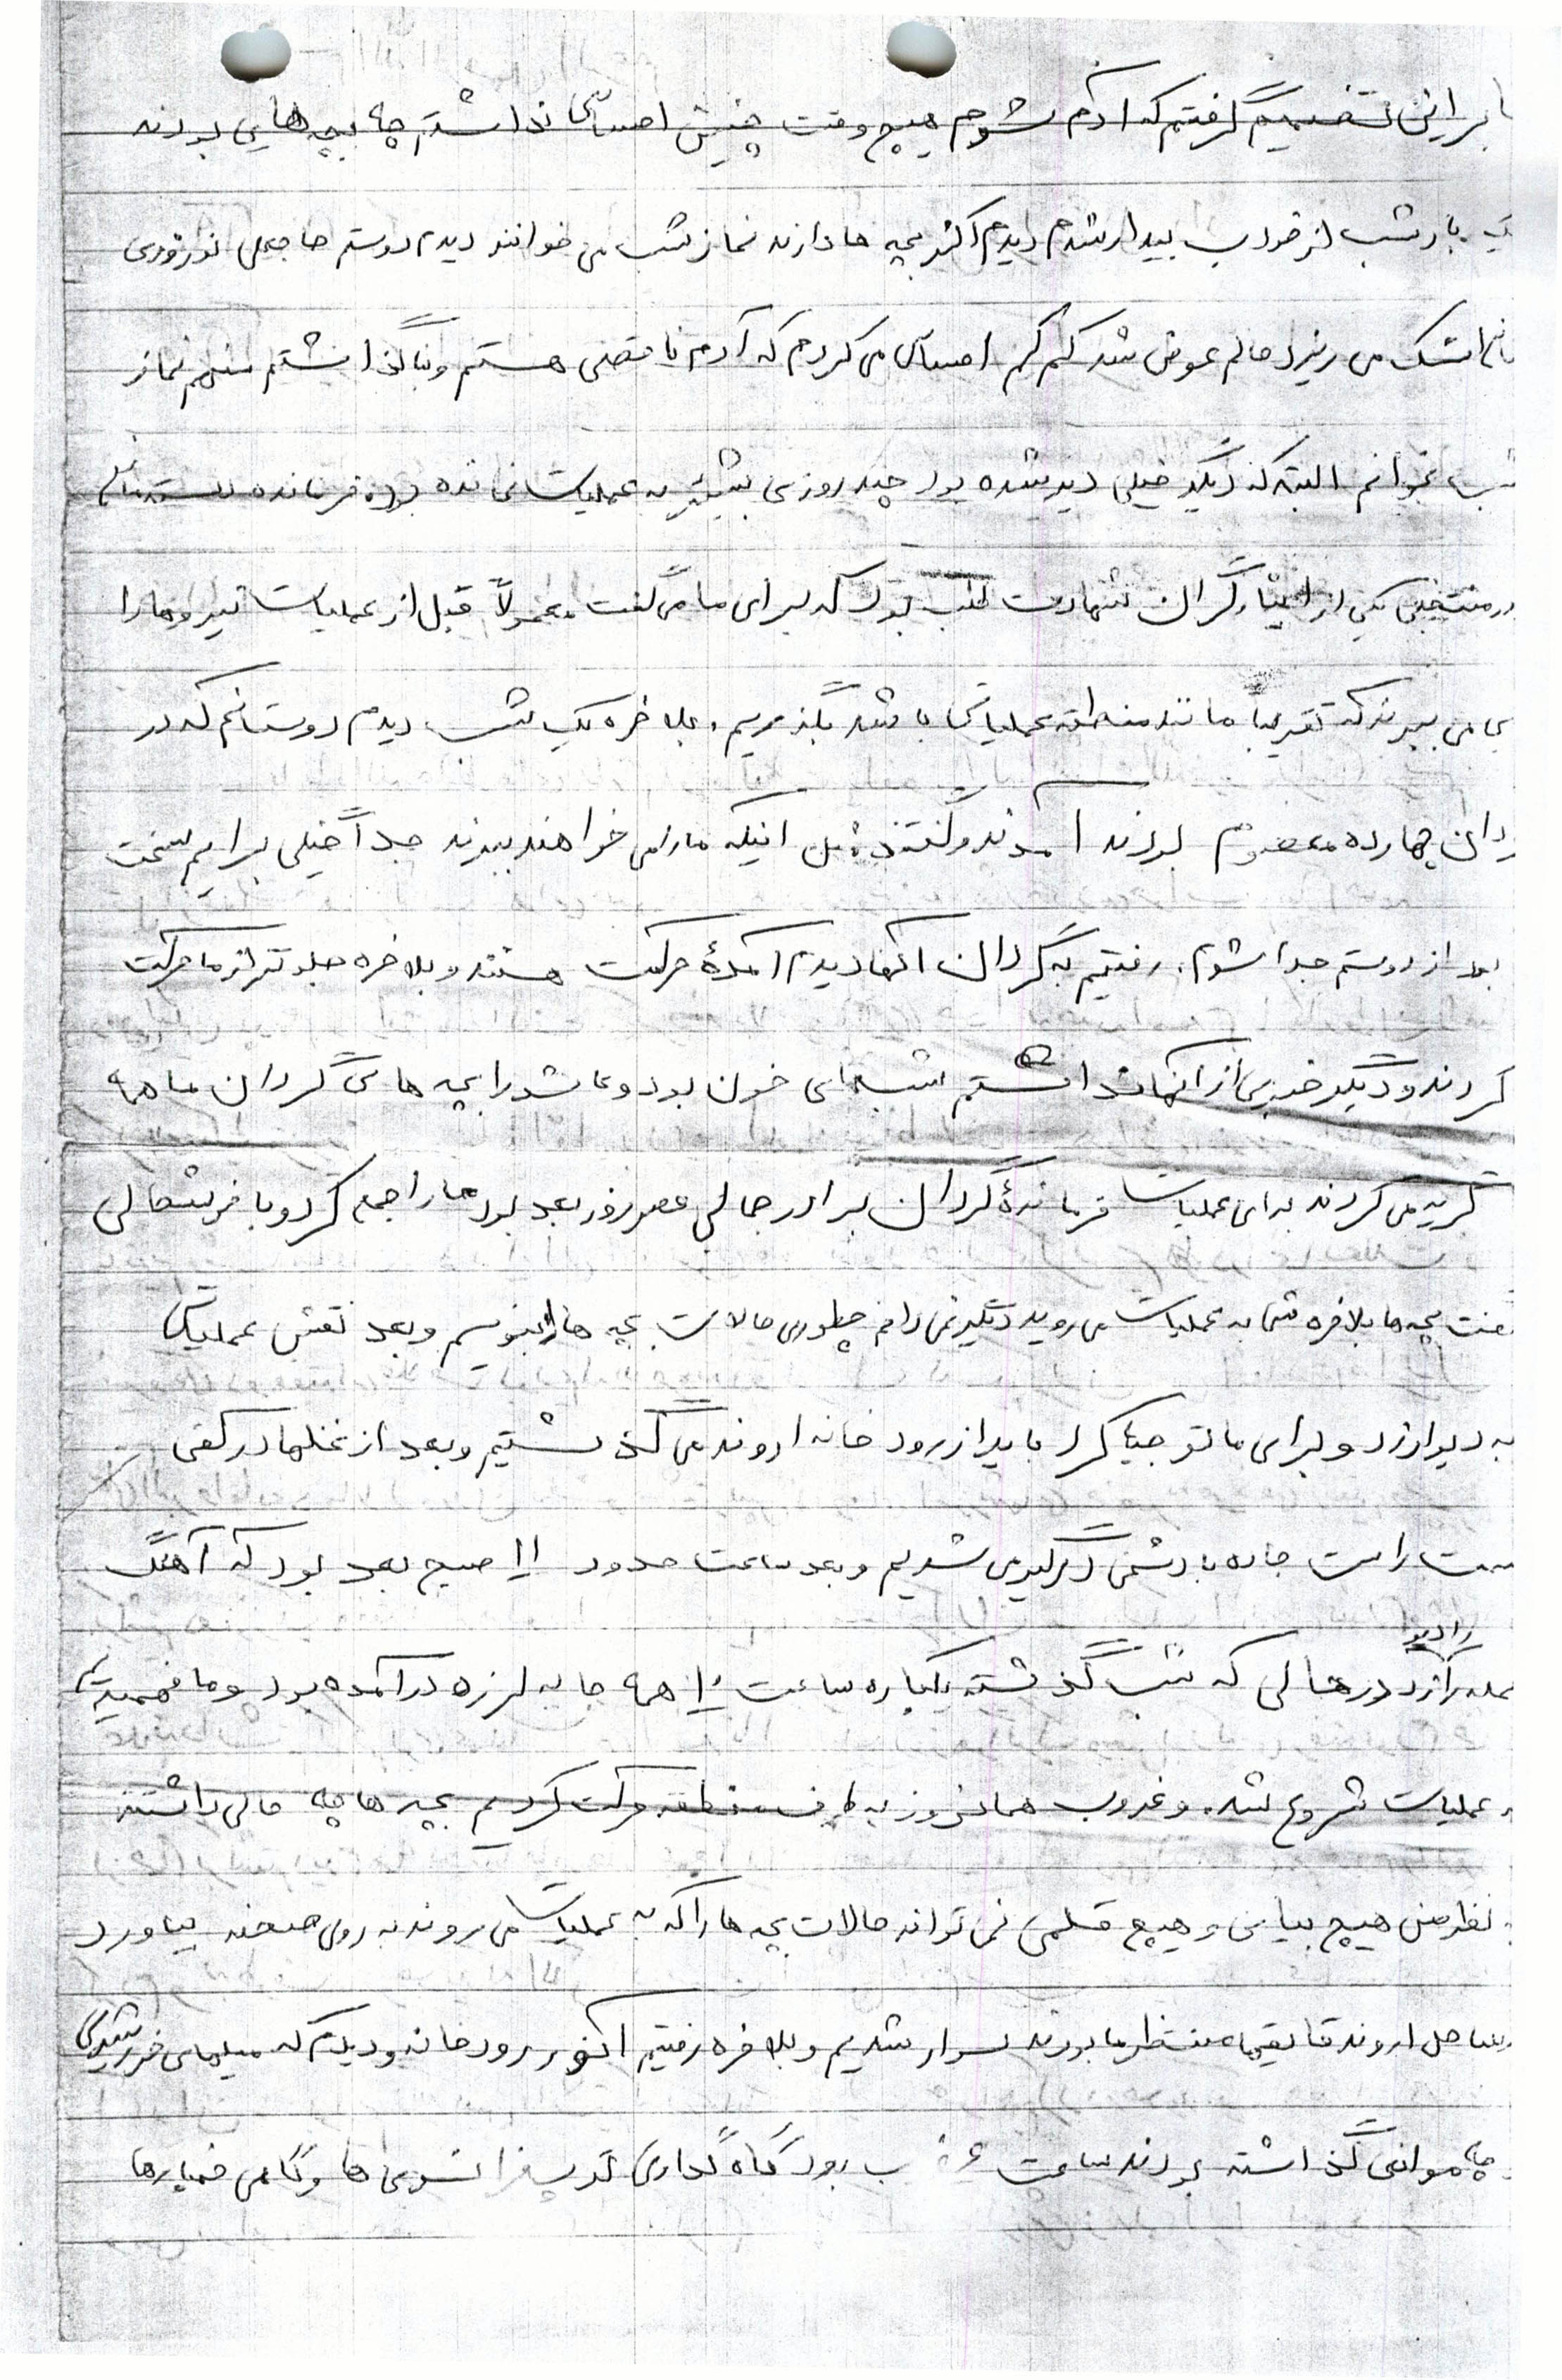 برایش تصمیم گرفتم که آدم شوم هیچ وقت چنین احساسی نداشتم چه بچه هایی بودند
یک بار شب از خواب بیدار شدم دیدم اکثر بچه ها دارند نماز شب می خوانند دیدم دوستم حاجعلی نوروزی
اشک می ریزد حالم عوض شد کم کم احساس می کردم که آدم ناقصی هستم و بنا گذاشتم منهم نماز
شب بخوانم البته که دیگر خیلی دیر شده بود چند روزی بیشتر به عملیات نمانده بود فرمانده دسته مان
منتجبی یکی از ایثارگران شهادت طلب بود که برای ما می گفت معمولاً قبل از عملیات نیروها را
می برند که تقریباً مانند منطقه عملیاتی باشد بگذریم. بلاخره یک شب دیدم دوستانم که در
گردان چهارده معصوم بودند آمدند و گفتند مثل اینکه ما را می خواهند ببرند جداً خیلی برایم سخت
بود از دوستم جدا شوم. رفتیم به گردان آنها دیدم آمدهٔ حرکت هستند و بلاخره جلوتر از ما حرکت
کردند و دیگر خبری از آنها نداشتم شبهای خون بود و عاشورا بچه های گردان ما همه
گریه می کردند برای عملیات فرماندهٔ گردان برادر جمالی عصر روز بعد بود ما را جمع کرد و با خوشحالی
گفت بچه ها بلاخره شما به عملیات می روید دیگر نمی دانم چطوری حالات بچه ها را بنویسم و بعد نقش عملیات
به دیوار زد و برای ما توجیه کرد باید از رودخانه اروند می گذشتیم و بعد از نخلها در کفی
سمت راست جاده با دشمن درگیری شدیم و بعد ساعت حدود ۱۱ صبح بعد بود که آهنگ
حمله را رادیو زد در حالی که شب گذشته یکباره ساعت ۱۰ همه جا به لرزه درآمده بود و ما فهمیدیم
عملیات شروع شده. و غروب همان روز به طرف منطقه حرکت کردیم بچه ها چه حالی داشتند
نظر من هیچ بیانی و هیچ قلمی نمی تواند حالات بچه ها را که به عملیات می روند به روی صفحه بیاورد
ساحل اروند قایقها منتظر ما بودند سوار شدیم و بلاخره رفتیم آنور رودخانه و دیدیم که میلهای خورشیدی
چه موانعی گذاشته بودند ساعت بود گاه گداری توپ فرانسوی ها و گاهی خمپارها